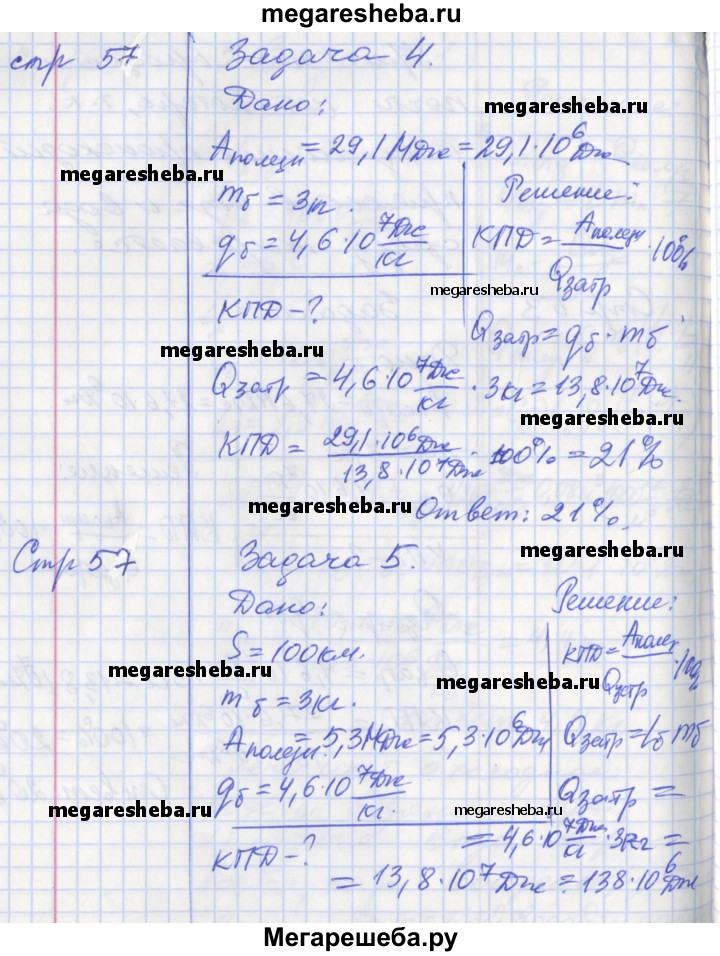 megaresheba.ru
стр 57 Задача 4.
Дано:
megaresheba.ru
Aполезн = 29,1 МДж = 29,1·10⁶ Дж
megaresheba.ru
mб = 3г. Решение:
qб = 4,6·10⁷ Дж/кг КПД = Aполезн/Qзатр ·100%
megaresheba.ru
КПД – ?
Qзатр = qб · mб
megaresheba.ru
Qзатр = 4,6·10⁷ Дж/кг · 3кг = 13,8·10⁷ Дж.
megaresheba.ru
КПД = 29,1·10⁶ Дж/13,8·10⁷ Дж · 100% = 21%
megaresheba.ru
Ответ: 21%.
megaresheba.ru
Стр 57 Задача 5.
Дано: Решение:
S = 100км. КПД = Aполез/Qзатр ·100%
megaresheba.ru
megaresheba.ru
mб = 3кг.
Aполезн. = 5,3 МДж = 5,3·10⁶ Дж Qзатр = qб mб
qб = 4,6·10⁷ Дж/кг. Qзатр =
megaresheba.ru
megaresheba.ru
= 4,6·10⁷ Дж/кг · 3кг =
КПД – ?
= 13,8·10⁷ Дж = 138·10⁶ Дж
Мегарешеба.ру